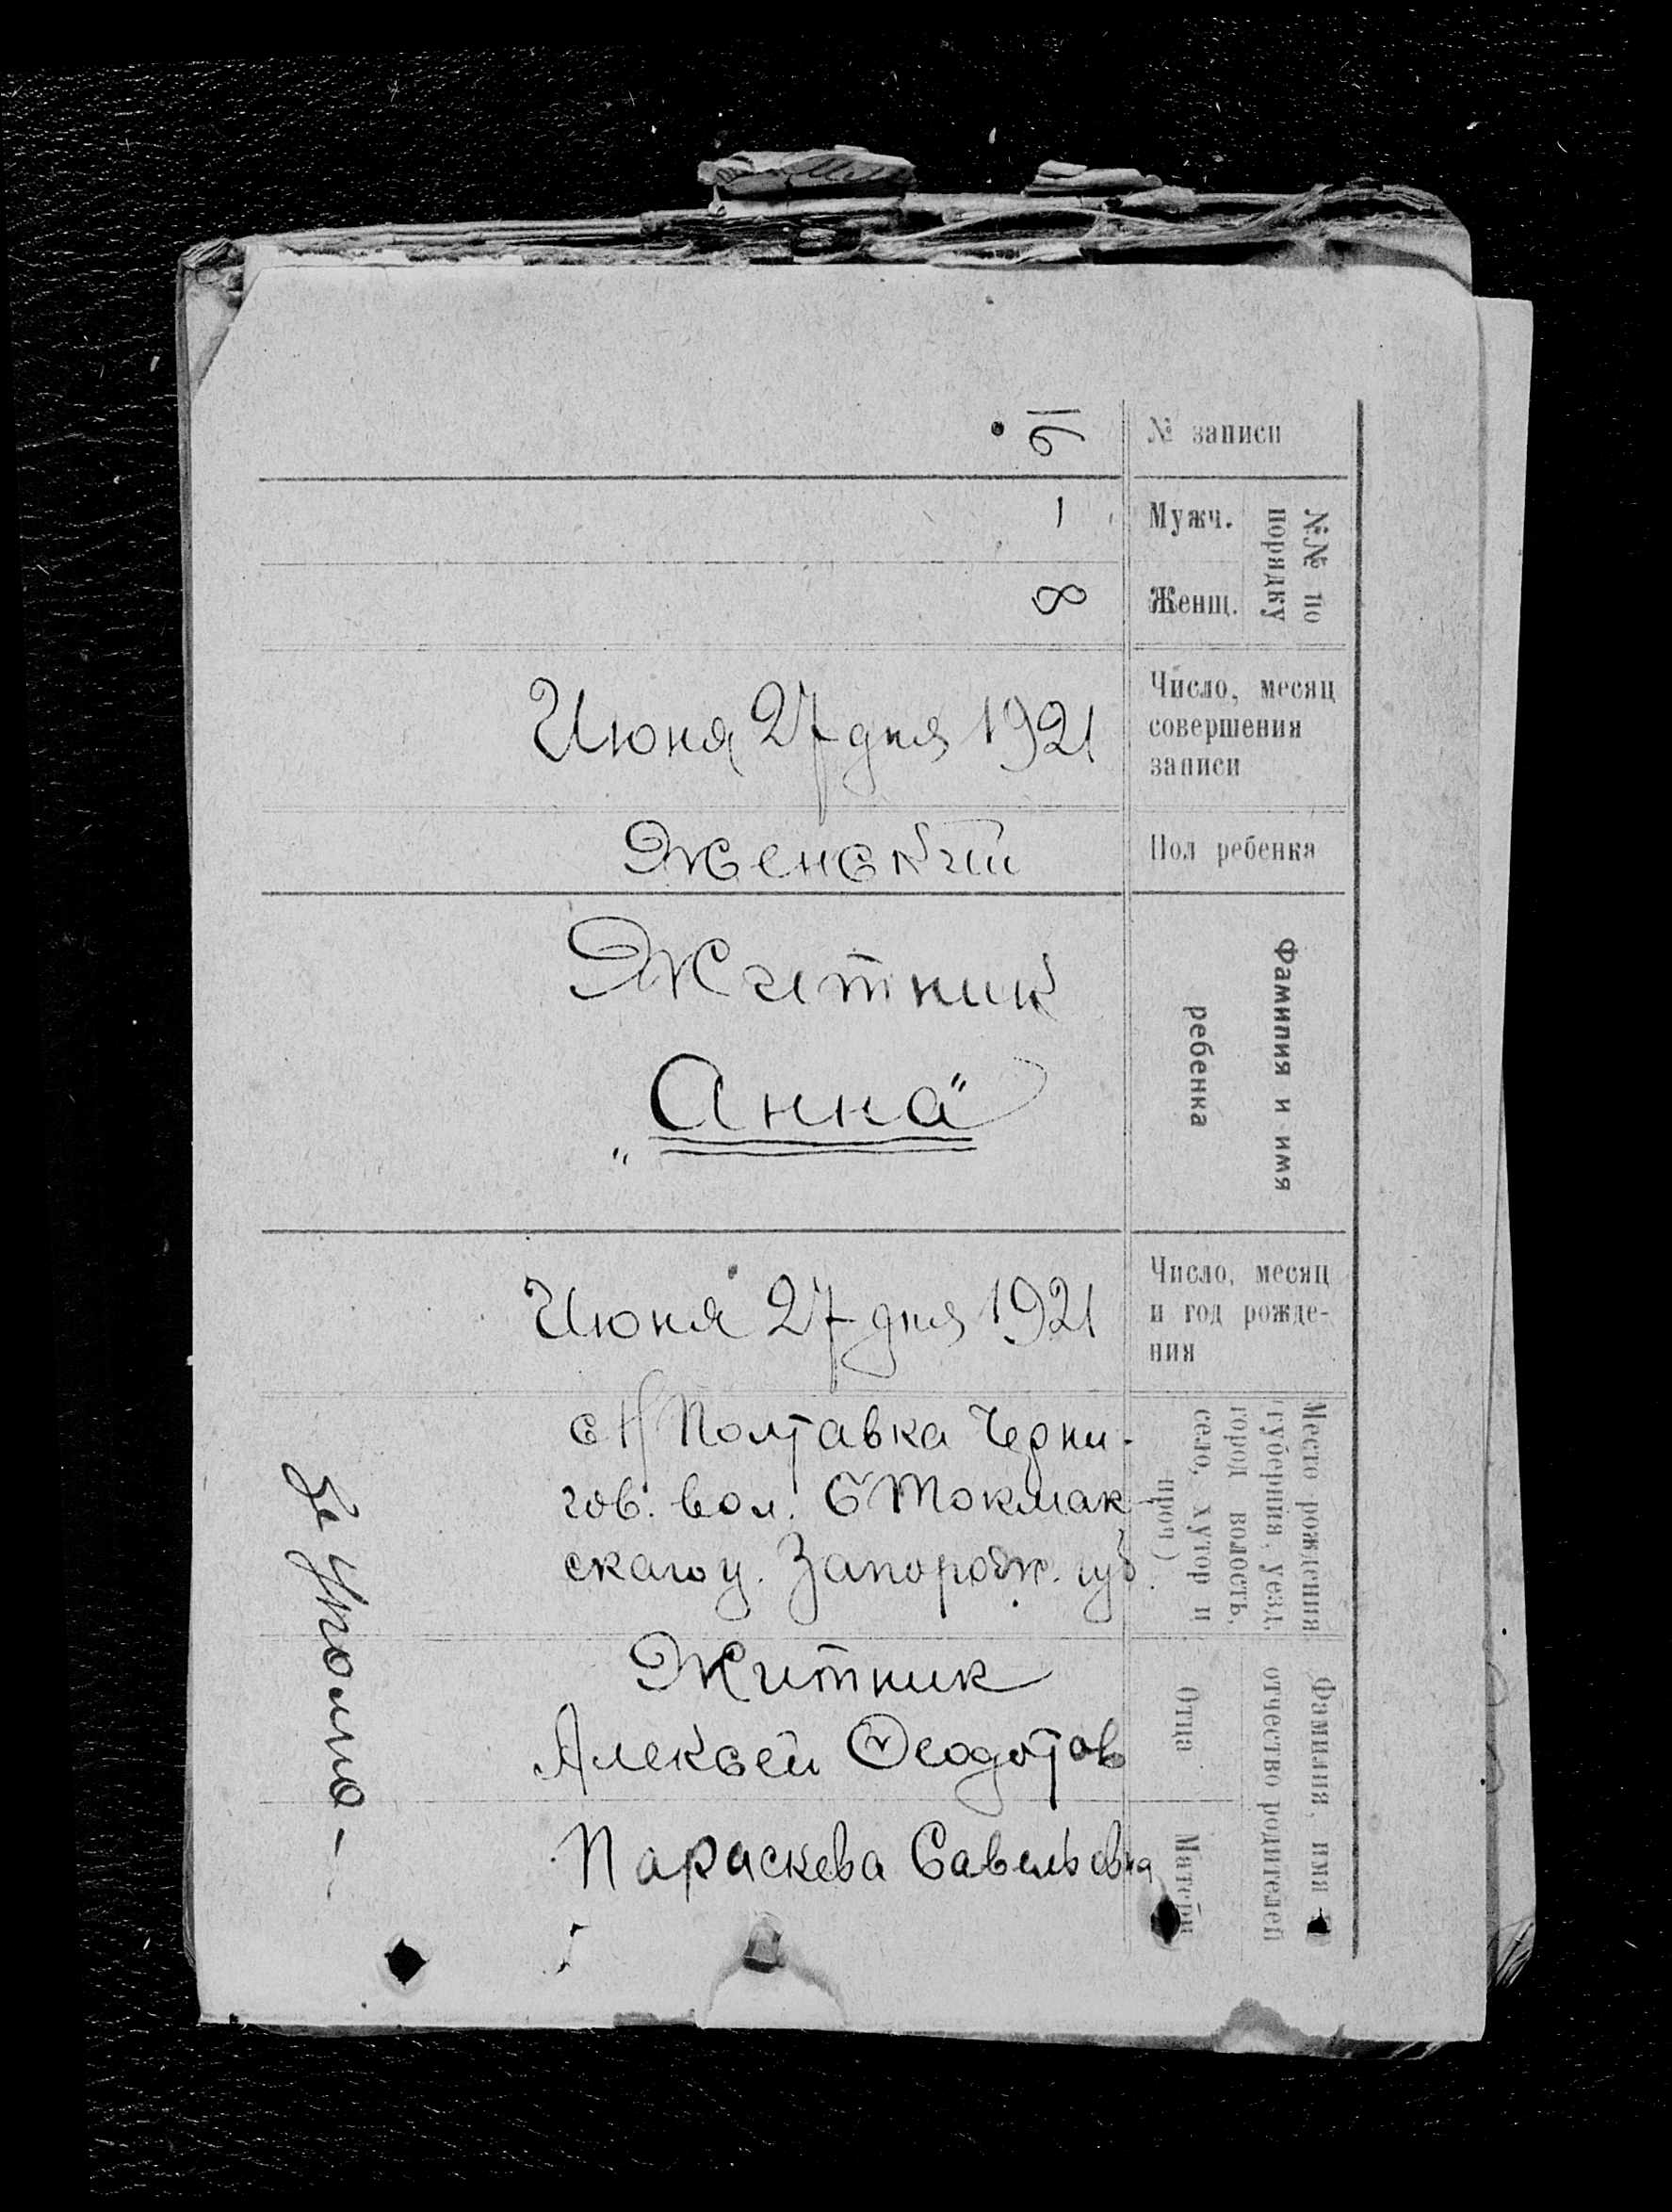 № записи
16
№№ по
порядку
Мужч.
1
Женщ.
8
Число, месяц
совершения
записи
Июня 27 дня 1921
Пол ребенка
Женский
Фамилия и имя
ребенка
Житник
„Анна“
Число, месяц
и год рожде-
ния
Июня 27 дня 1921
Место рождения
(губерния, уезд,
город волость,
село, хутор и
проч)
с Н Полтавка Черни-
гов. вол. Б Токмак-
скаго у. Запорож. губ.
Фамилия, имя
отчество родителей
Отца
Житник
Алексей Феодотов
Матери
Параскева Савельевна